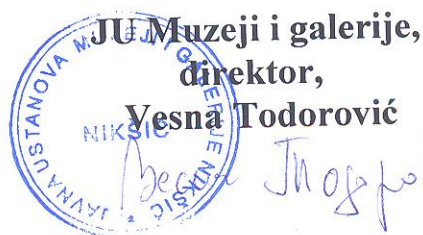 JU Muzeji i galerije,
direktor,
Vesna Todorović
JAVNA USTANOVA MUZEJI I GALERIJE NIKŠIĆ
NIKŠIĆ
Весна